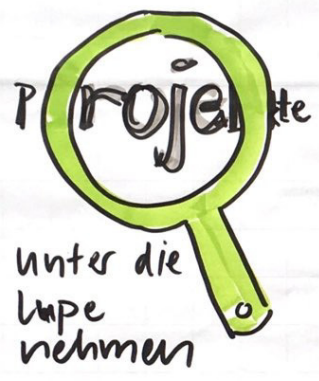 Projekte
unter die
Lupe
nehmen